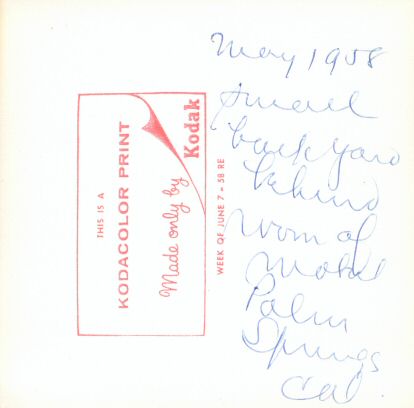 May 1958
small
back yard
behind
room of
Motel
Palm
Springs
Cal.
THIS IS A
KODACOLOR PRINT
Made only by
Kodak
WEEK OF JUNE 7 - 58 RE